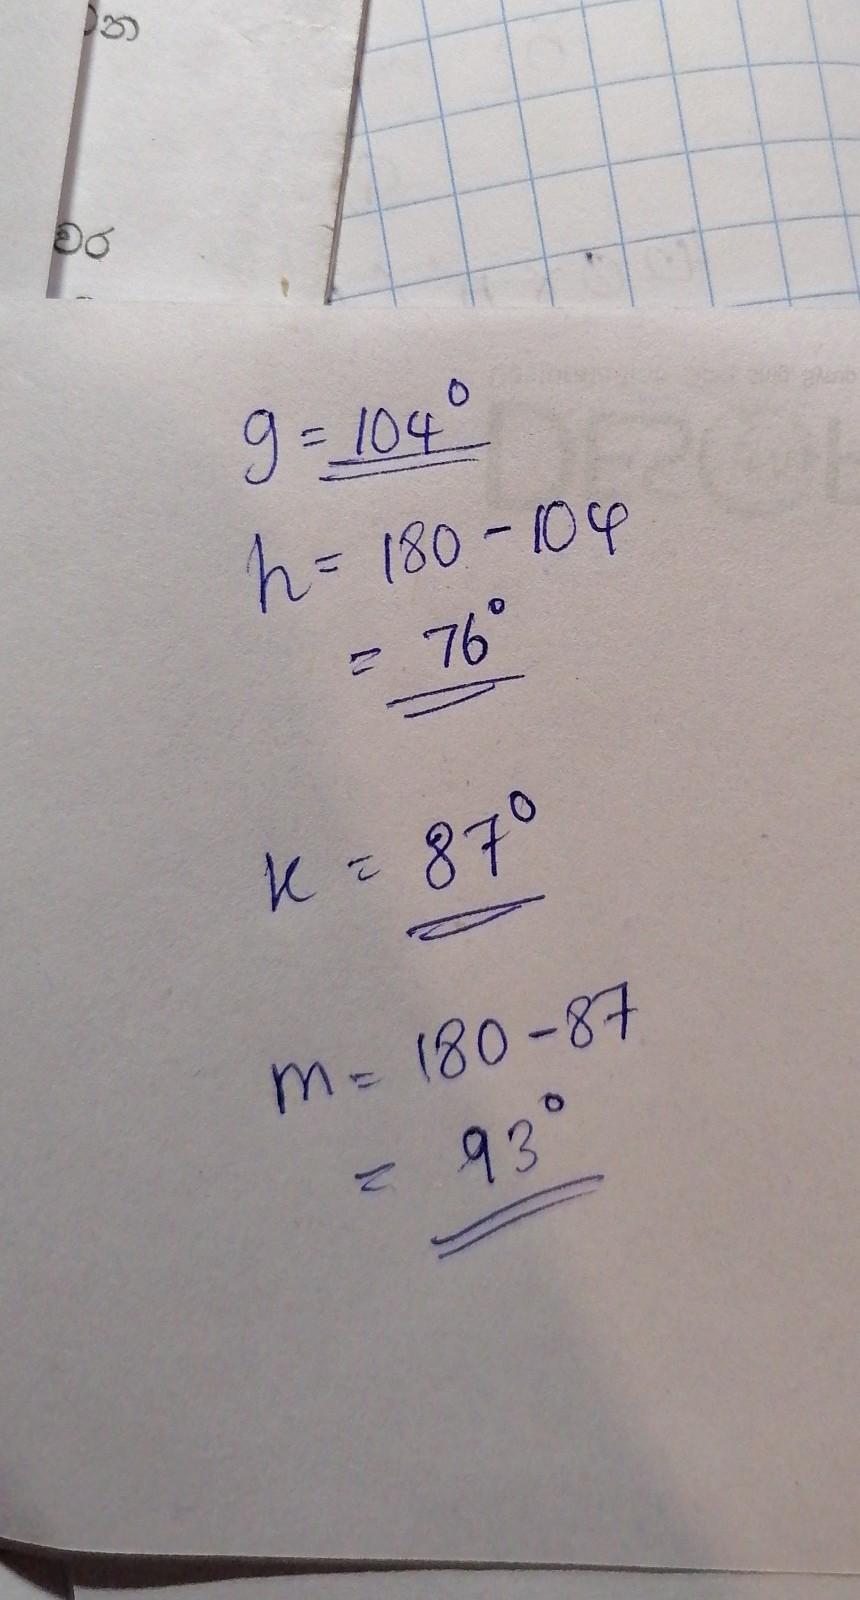 වර
g = 104°
h = 180 - 104
= 76°
k = 87°
m = 180 - 87
= 93°